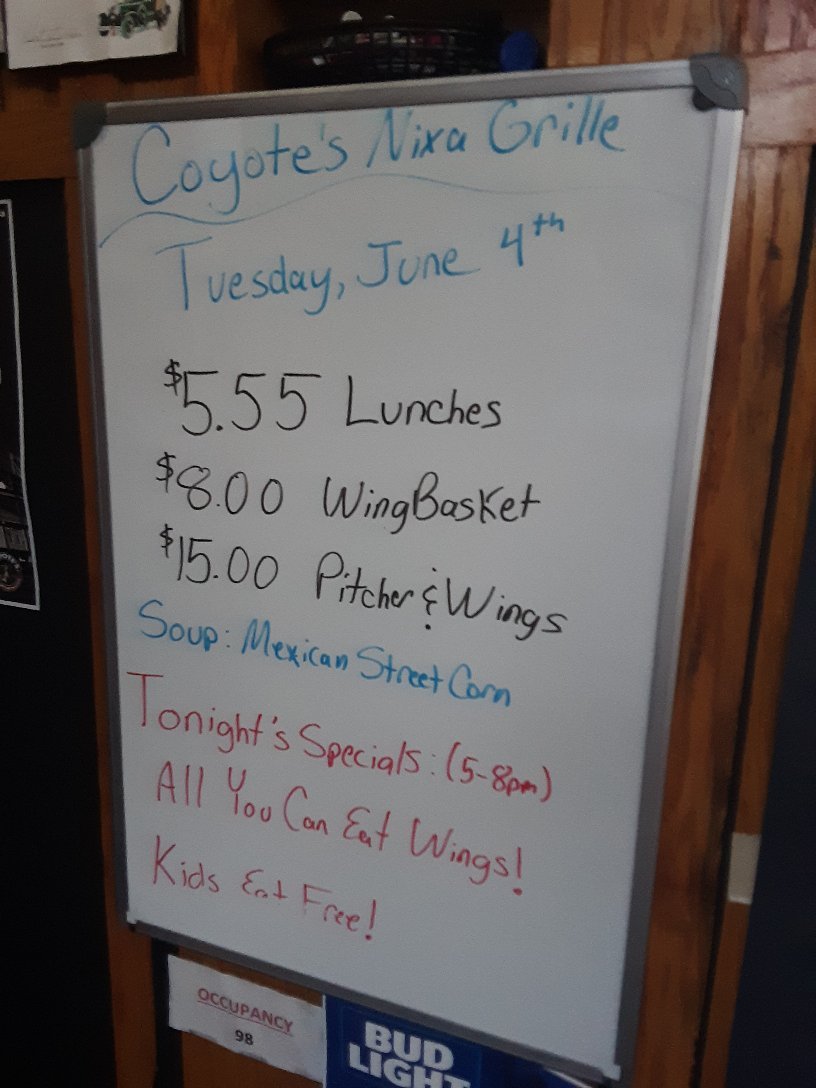 Coyote's Nixa Grille
Tuesday, June 4th
$5.55 Lunches
$8.00 Wing Basket
$15.00 Pitcher & Wings
Soup: Mexican Street Corn
Tonight's Specials: (5-8pm)
All You Can Eat Wings!
Kids Eat Free!
OCCUPANCY
98
BUD
LIGHT